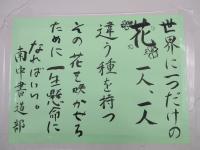 世界に一つだけの
花 一人、一人
違う種を持つ
その花を咲かせる
ために一生懸命に
なればいい。
南中書道部